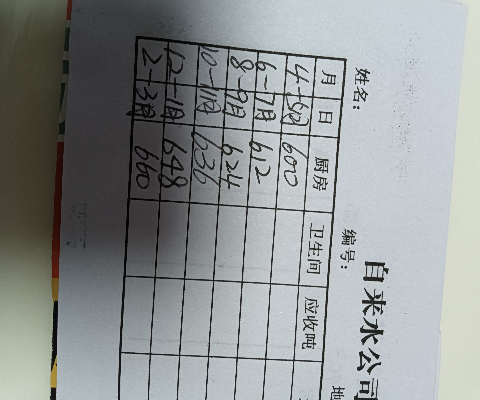 自来水公司
姓名： 编号： 地
月 日 厨房 卫生间 应收吨
4-5月 600
6-7月 612
8-9月 624
10-11月 636
12-1月 648
2-3月 660